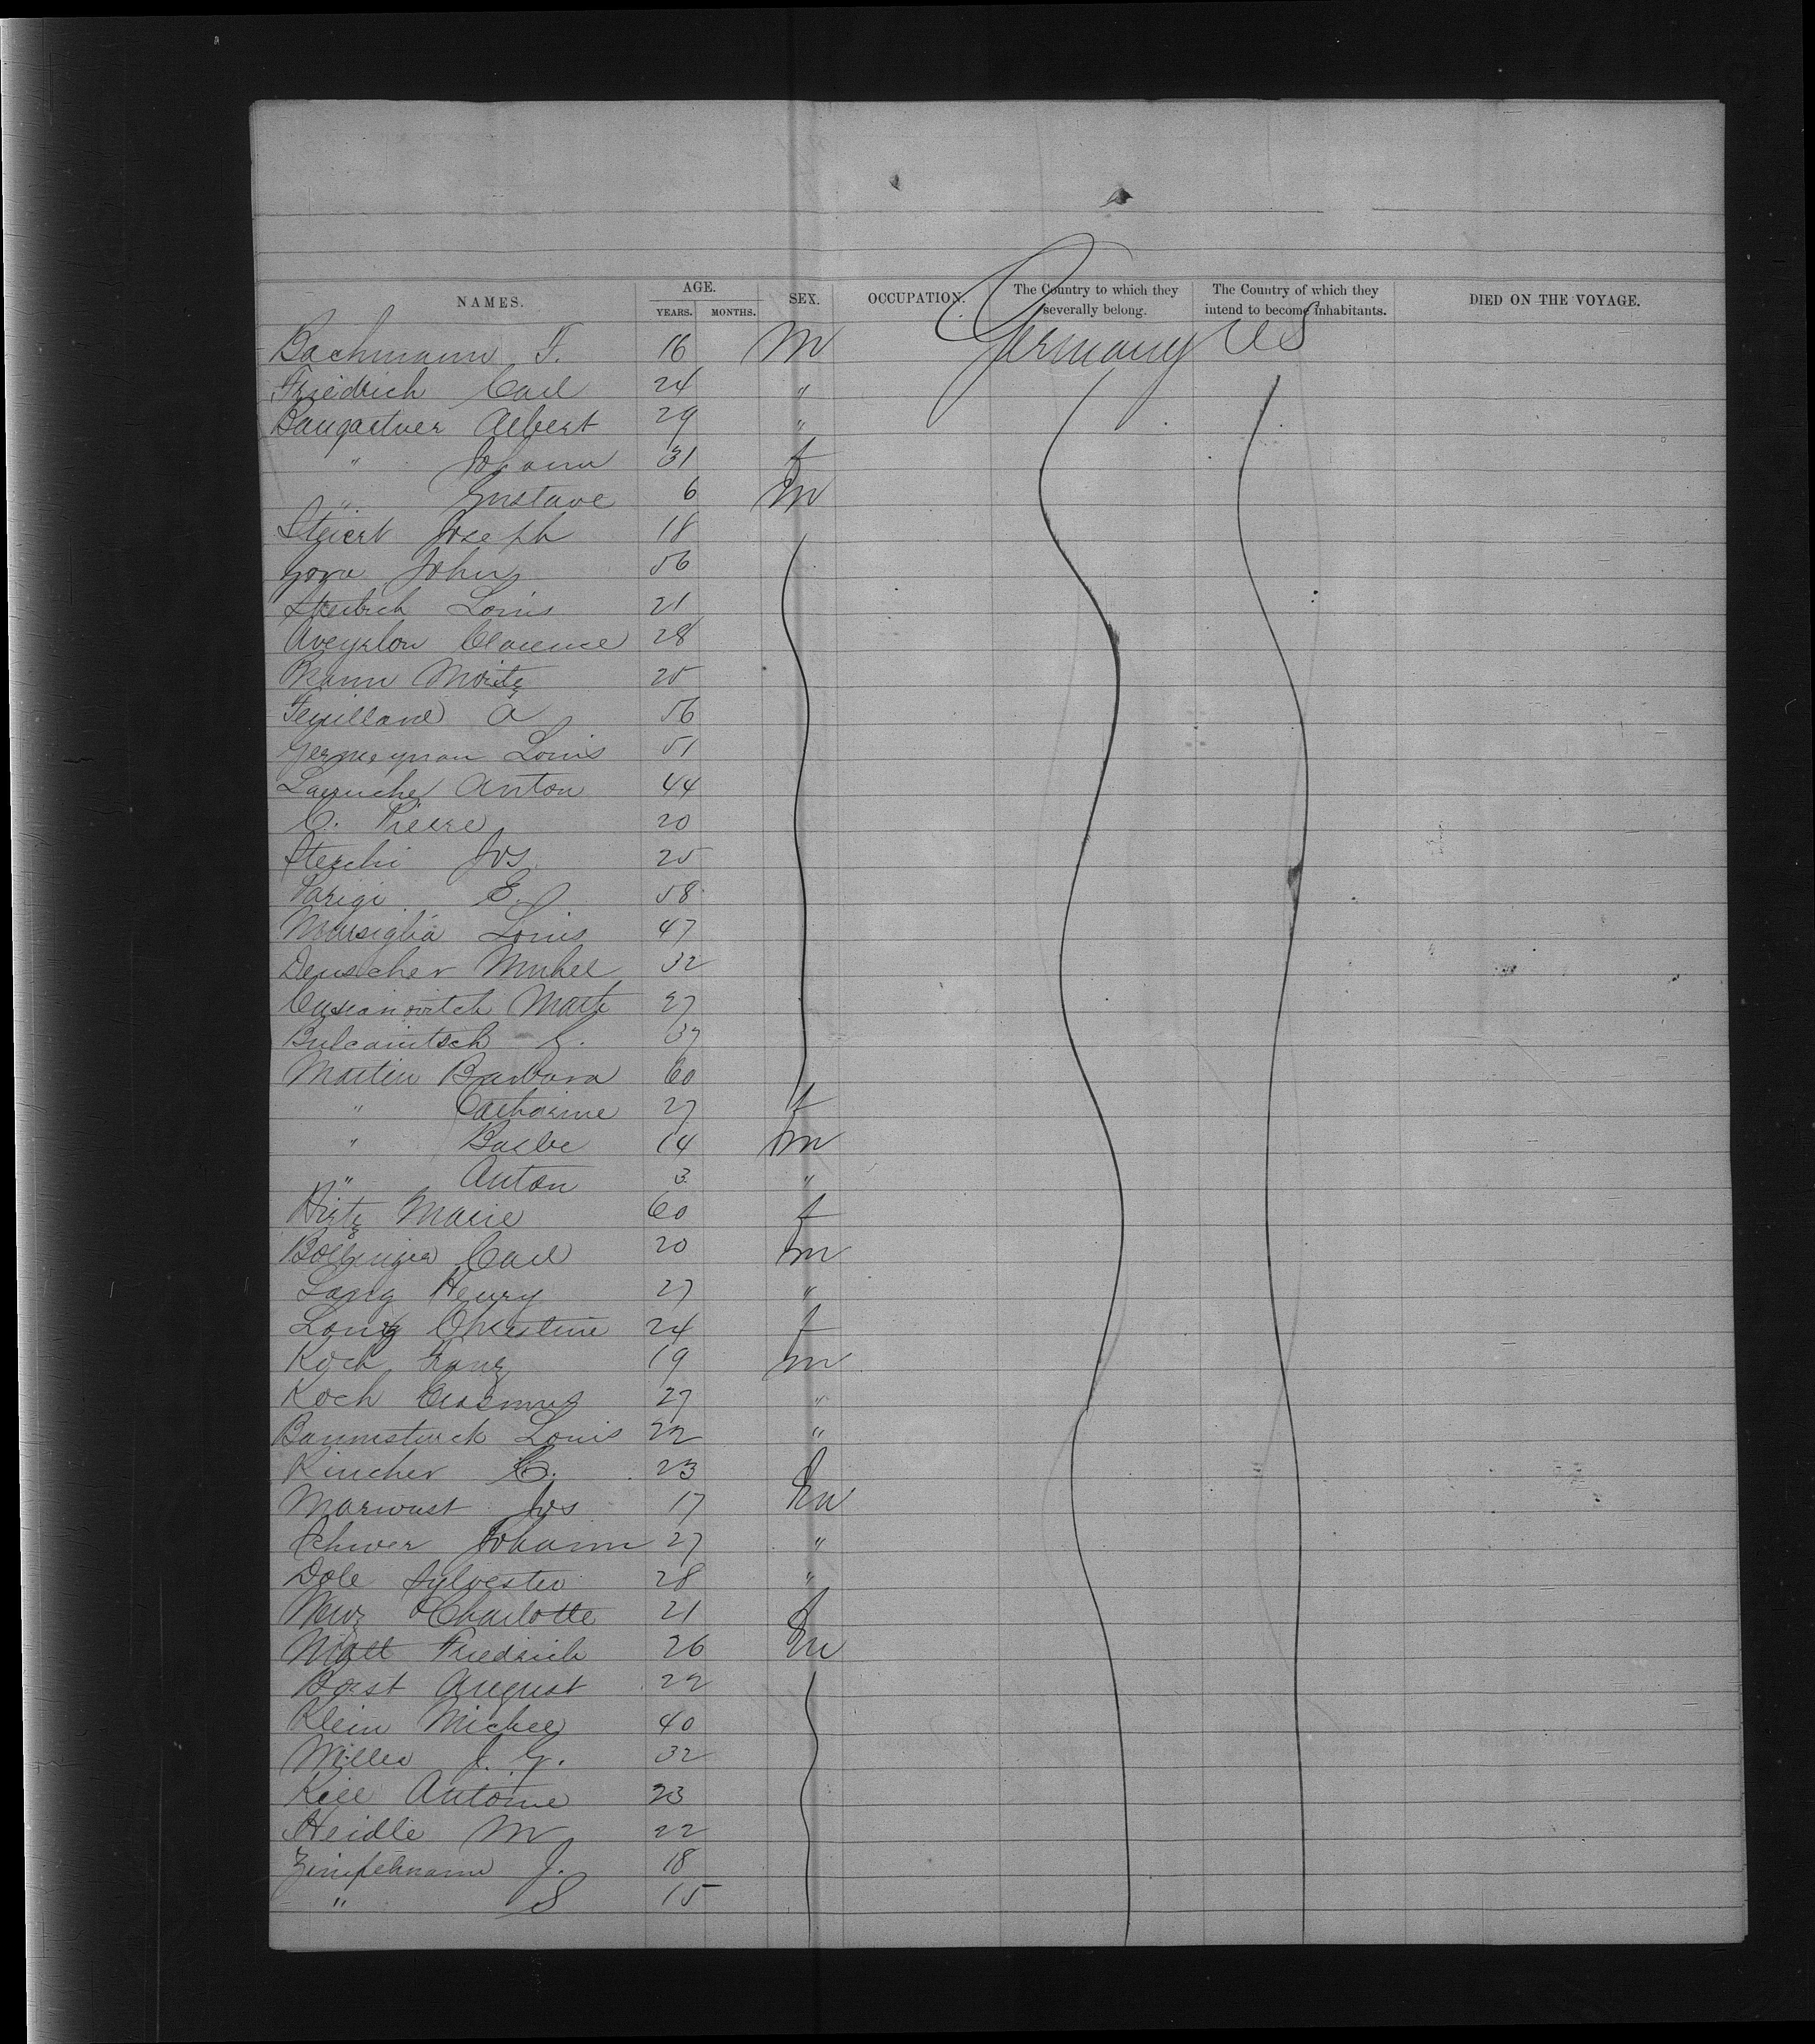 NAMES. AGE. YEARS. MONTHS. SEX. OCCUPATION. The Country to which they severally belong. The Country of which they intend to become inhabitants. DIED ON THE VOYAGE.
Bachmann F. 16 M Germany US
Friedrich Carl 24 "
Baugartner Albert 29 "
" Johann 31 f
" Gustave 6 M
Steiert Joseph 18
John 56
Louis 21
Clarence 28
Moritz 25
A 56
Louis 51
Anton 44
C. Pierre 20
Sterchi Jos 25
Parigi E. 58
Marsiglia Louis 47
Denscher Michel 32
27
37
Martin Barbara 60
" Catharine 27 f
" 14 m
" Anton 3 "
Hirtz Marie 60 f
Bollinger Carl 20 m
Lang Henry 27 "
Lang Christine 24 f
Koch Franz 19 m
Koch Erasmus 27 "
Baumstark Louis 22 "
Kincher C. 23 f
Marwast Jos 17 m
Schwer Johann 27 "
Dole Sylvester 28 "
Charlotte 21 f
Matt Friedrich 26 m
Borst August 22
Klein Michel 40
Miller J. G. 32
Kill Antoine 23
Heidle M 22
Zimpelmann J. 18
" S 15